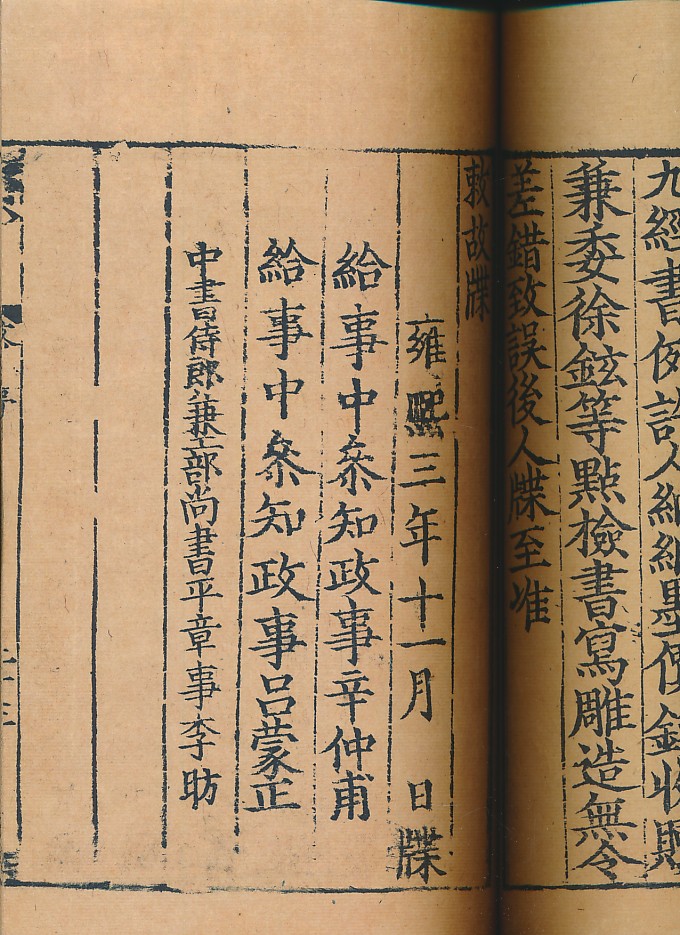 九經書例許人納紙墨價錢收贖
兼委徐鉉等點檢書寫雕造無令
差錯致誤後人牒至准
敕故牒
雍熙三年十一月 日牒
給事中叅知政事辛仲甫
給事中叅知政事吕蒙正
中書侍郎兼工部尚書平章事李昉